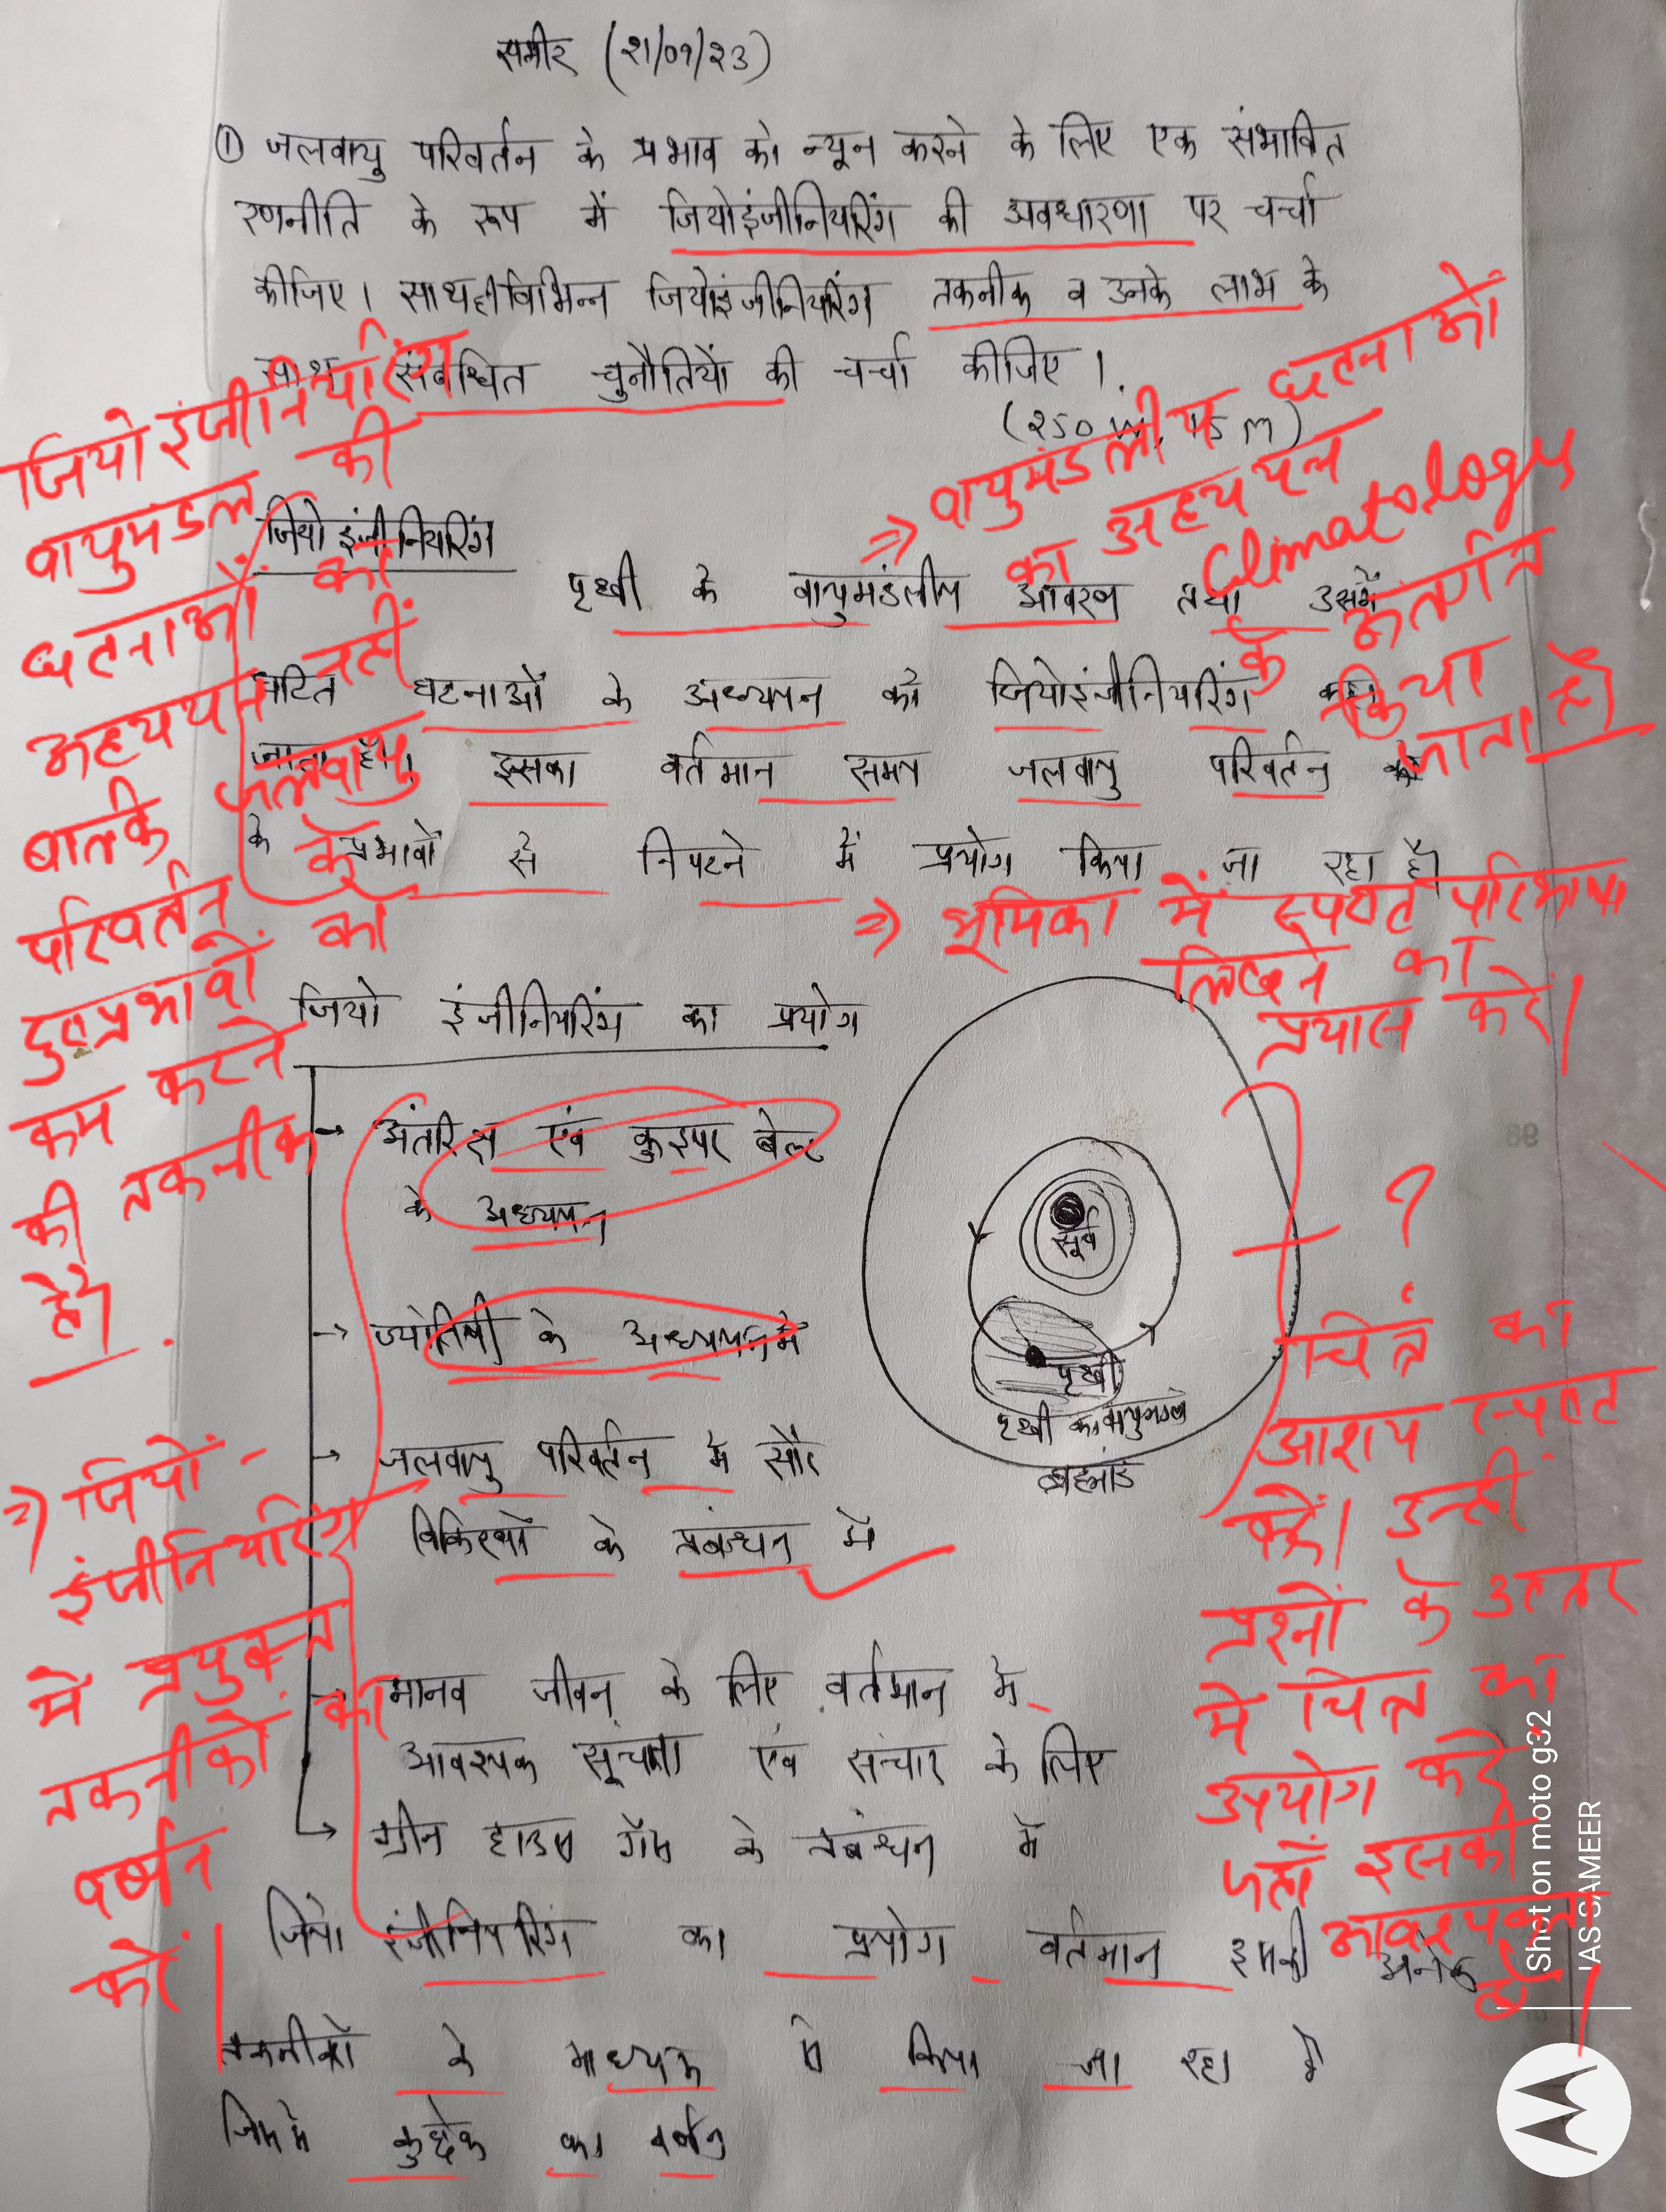 समीर (२१/०१/२३)
① जलवायु परिवर्तन के प्रभाव को न्यून करने के लिए एक संभावित
रणनीति के रूप में जियोइंजीनियरिंग की अवधारणा पर चर्चा
कीजिए। साथही विभिन्न जियोइंजीनियरिंग तकनीक व उनके लाभ के
साथ संबंधित चुनौतियों की चर्चा कीजिए।
(२५० W, 15 m)
जियो इंजीनियरिंग
पृथ्वी के वायुमंडलीय आवरण तथा उसमें
घटित घटनाओं के अध्ययन को जियोइंजीनियरिंग कहा
जाता है। इसका वर्तमान समय जलवायु परिवर्तन
के प्रभावों से निपटने में प्रयोग किया जा रहा है।
जियोइंजीनियरिंग
वायुमंडल की
घटनाओं का
अध्ययन नहीं
बल्कि जलवायु
परिवर्तन के
दुष्प्रभावों को
कम करने
की तकनीक
है।
⇒ वायुमंडलीय घटनाओं
का अध्ययन
Climatology
के अंतर्गत
किया
जाता है।
⇒ भूमिका में स्पष्ट परिभाषा
लिखने का
प्रयास करें।
जियो इंजीनियरिंग का प्रयोग
→ अंतरिक्ष एवं कुइपर बेल्ट
के अध्ययन
→ ज्योतिषी के अध्ययन में
→ जलवायु परिवर्तन में सौर
विकिरणों के प्रबंधन में
→ मानव जीवन के लिए वर्तमान में
आवश्यक सूचना एवं संचार के लिए
→ ग्रीन हाउस गैस के प्रबंधन में
सूर्य
पृथ्वी
पृथ्वी का वायुमण्डल
ब्रह्मांड
?
चित्र का
आशय स्पष्ट
करें। उन्हीं
प्रश्नों के उत्तर
में चित्र का
उपयोग करें
जहाँ इसकी
आवश्यकता
हो।
⇒ जियो-
इंजीनियरिंग
में प्रयुक्त
तकनीकों का
वर्णन
करें।
जियो इंजीनियरिंग का प्रयोग वर्तमान इसकी अनेक
तकनीकों के माध्यम से किया जा रहा है
जिसमें कुछेक का वर्णन
Shot on moto g32
IAS SAMEER
96